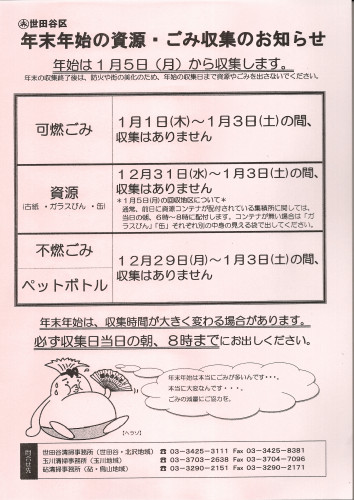 世田谷区
年末年始の資源・ごみ収集のお知らせ
年始は1月5日(月)から収集します。
年末の収集終了後は、防火や街の美化のため、年始の収集日まで資源やごみを出さないでください。
可燃ごみ
1月1日(木)~1月3日(土)の間、
収集はありません
資源
(古紙・ガラスびん・缶)
12月31日(水)~1月3日(土)の間、
収集はありません
*1月5日(月)の回収地区について*
通常、前日に資源コンテナが配付されている集積所に関しては、
当日の朝、6時~8時に配付します。コンテナが無い場合は「ガ
ラスびん」「缶」それぞれ別の中身の見える袋で出してください。
不燃ごみ
ペットボトル
12月29日(月)~1月3日(土)の間、
収集はありません
年末年始は、収集時間が大きく変わる場合があります。
必ず収集日当日の朝、8時までにお出しください。
年末年始は本当にごみが多いんです・・・。
本当に大変なんです・・・。
ごみの減量にご協力を。
(ヘラゾ)
問合せ先
世田谷清掃事務所(世田谷・北沢地域) ☎ 03-3425-3111 Fax 03-3425-8381
玉川清掃事務所(玉川地域) ☎ 03-3703-2638 Fax 03-3704-7096
砧清掃事務所(砧・烏山地域) ☎ 03-3290-2151 Fax 03-3290-2171